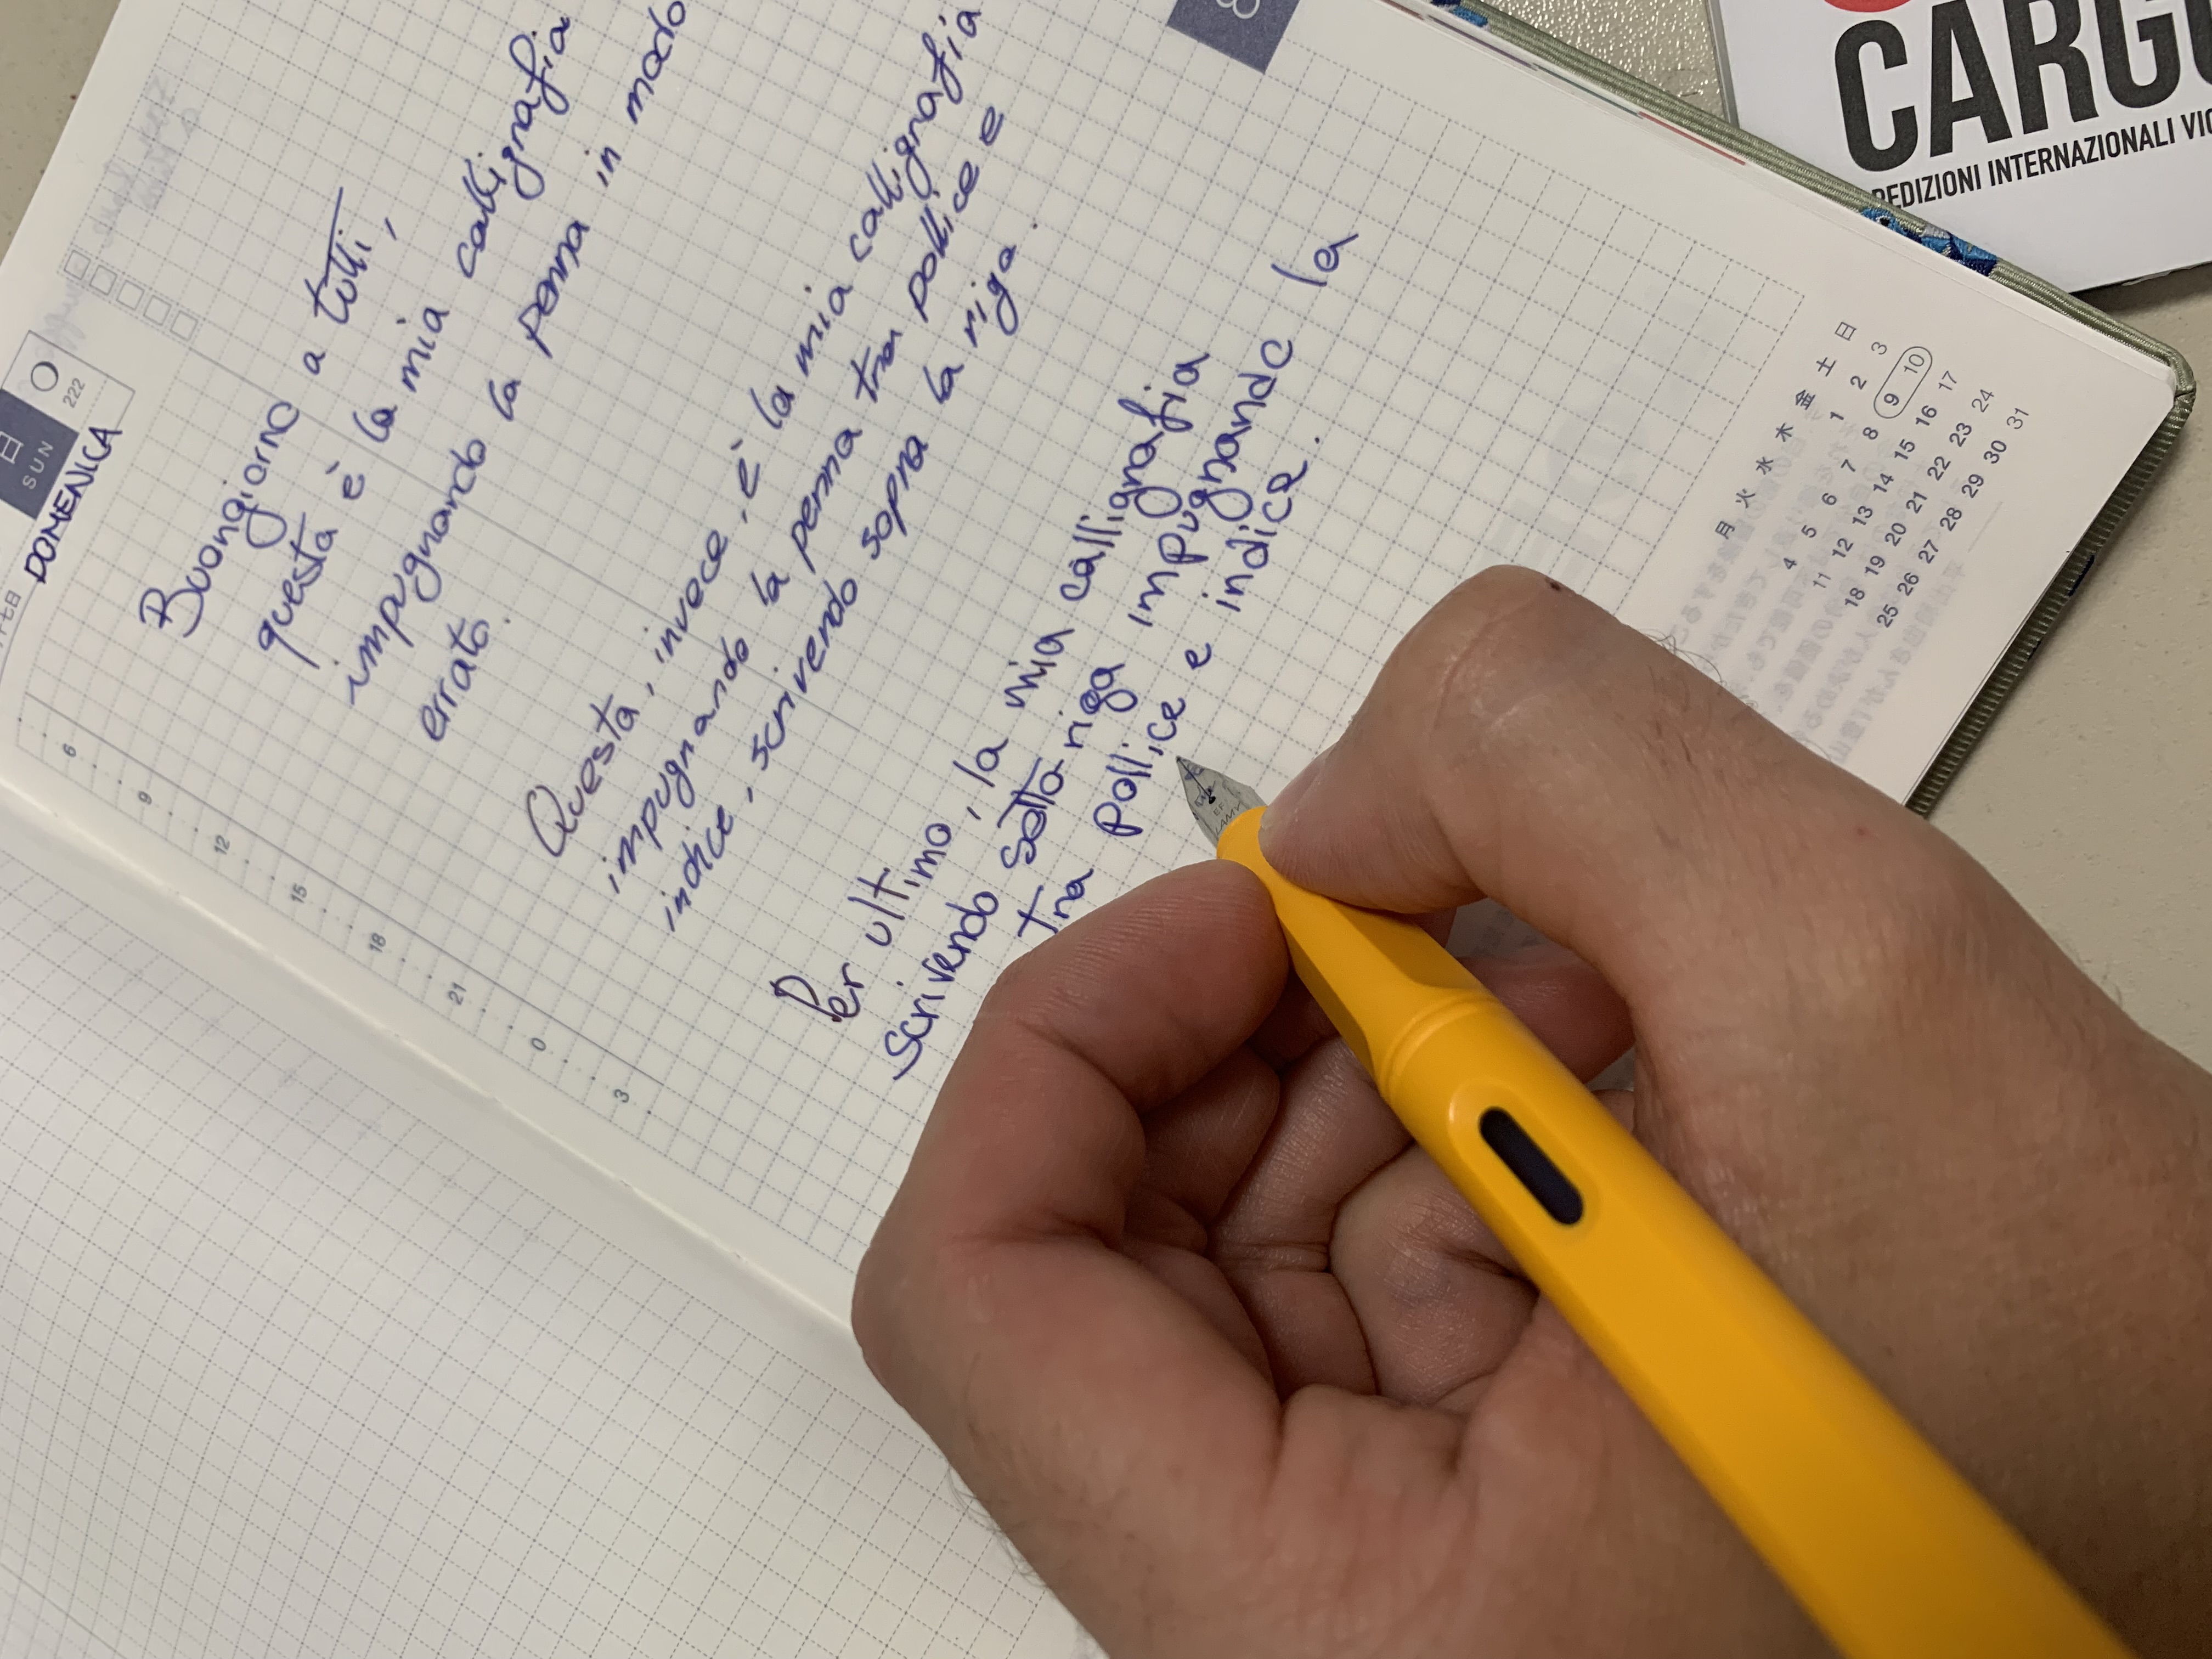 日
SUN
222
DOMENICA
Buongiorno a tutti,
questa è la mia calligrafia
impugnando la penna in modo
errato.
Questa, invece, è la mia calligrafia
impugnando la penna tra pollice e
indice, scrivendo sopra la riga.
Per ultimo, la mia calligrafia
scrivendo sotto riga impugnando la
tra pollice e indice.
6
9
12
15
18
21
0
3
8
月 火 水 木 金 土 日
1 2 3
4 5 6 7 8 9 10
11 12 13 14 15 16 17
18 19 20 21 22 23 24
25 26 27 28 29 30 31
EF
LAMY
CARGO
PEDIZIONI INTERNAZIONALI